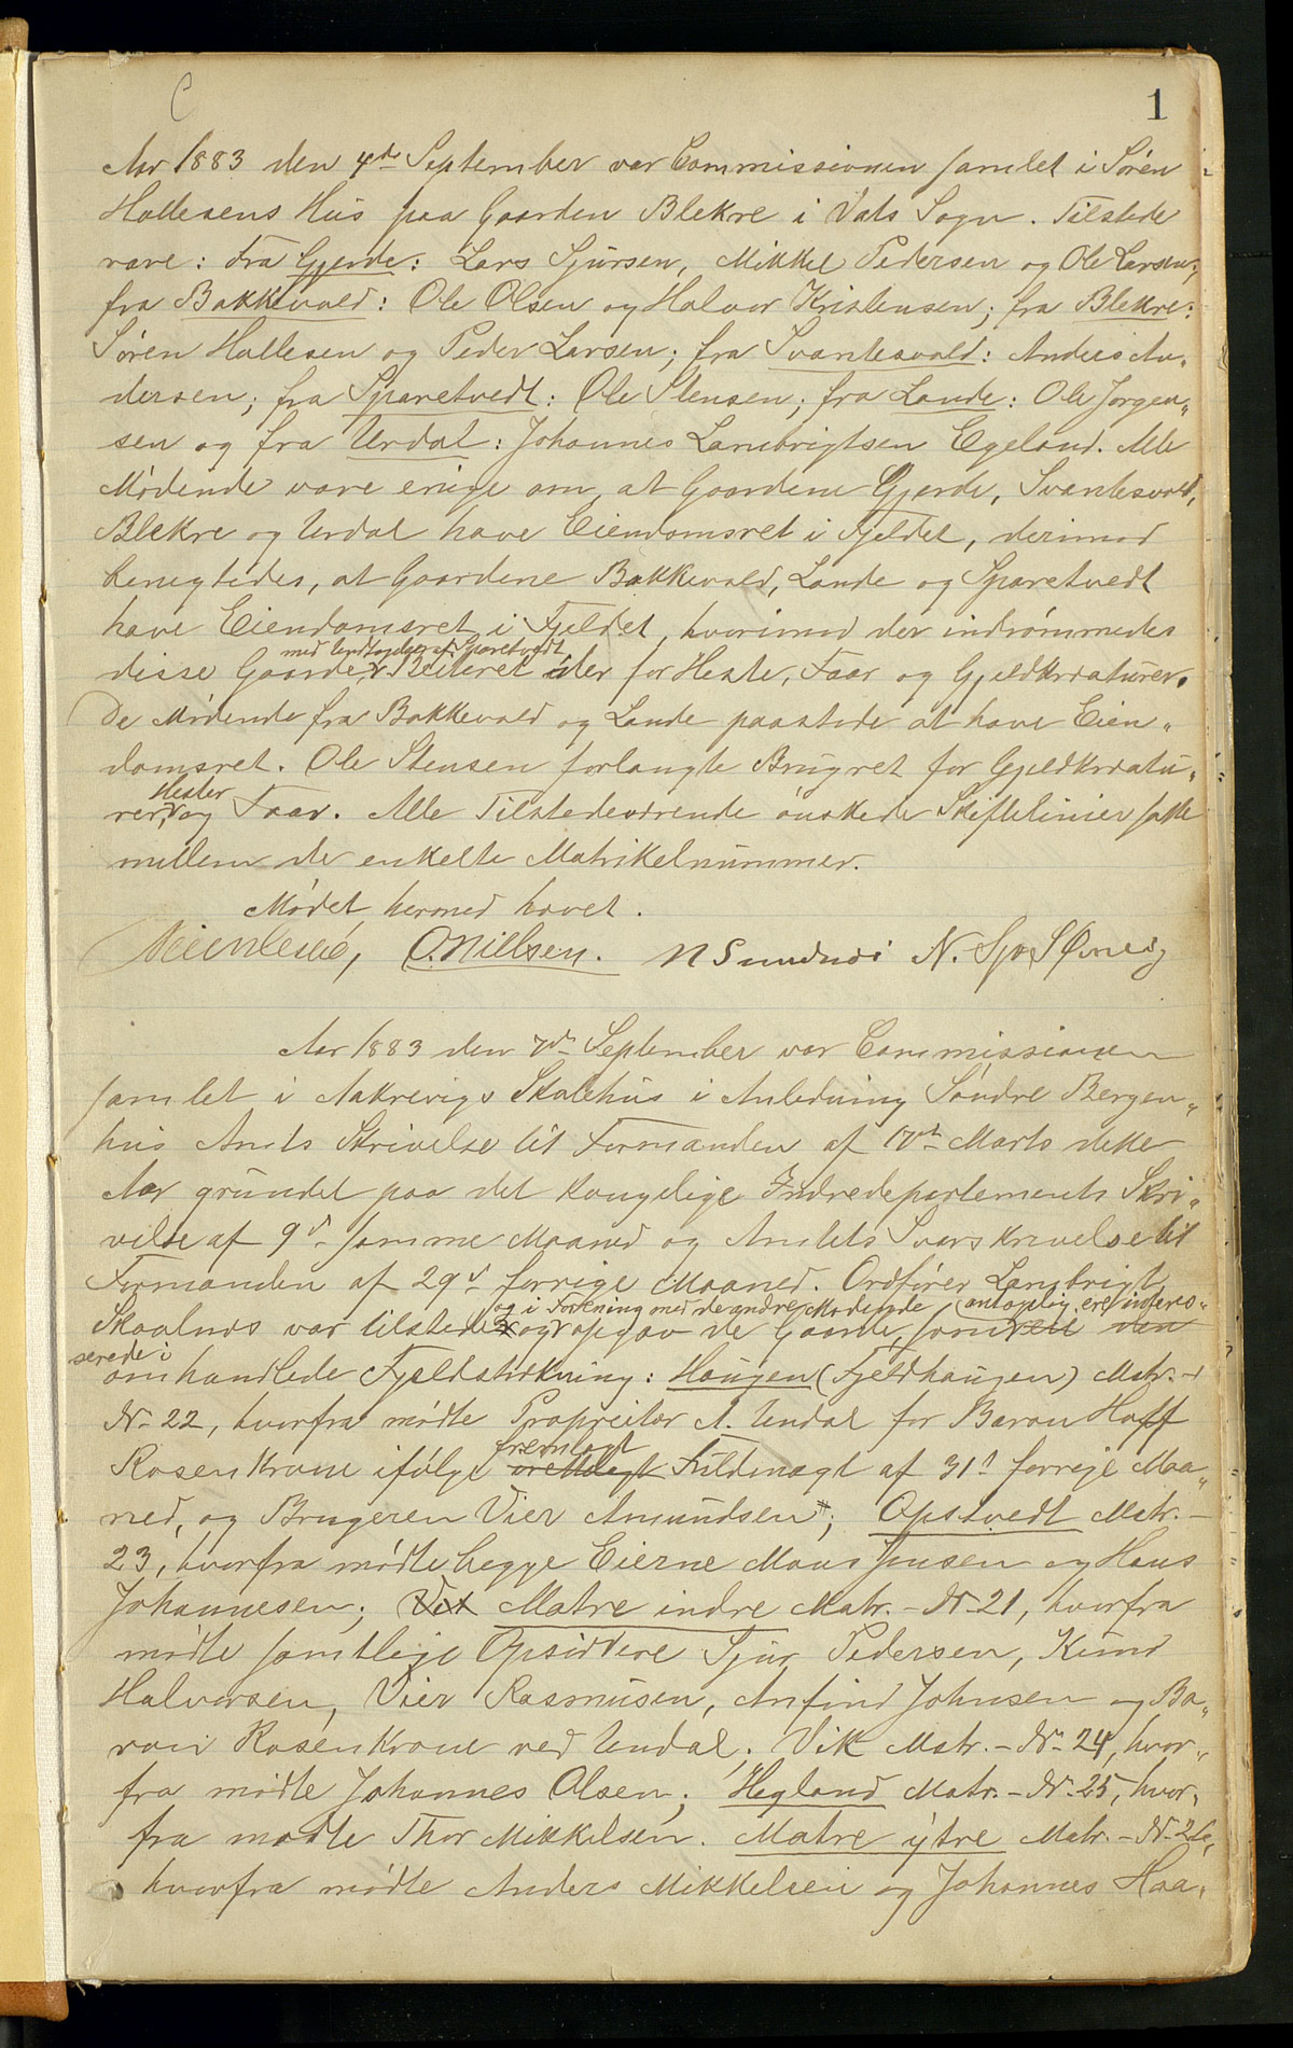 C
1
Aar 1883 den 4de September var Commissionen samlet i Søren
Hallesens Hus paa Gaarden Blekre i Vats Sogn. Tilstede
vare: Fra Gjerde: Lars Sjursen, Mikkel Pedersen og Ole Larsen;
fra Bakkevold: Ole Olsen og Halvor Kristensen; fra Blekre:
Søren Hallesen og Peder Larsen; fra Svantesvold: Anders An„
dersen; fra Sparetvedt: Ole Stensen; fra Lande: Ole Jørgen„
sen og fra Urdal: Johannes Lambrigtsen Egeland. Alle
Mødende vare enige om, at Gaardene Gjerde, Svantesvold,
Blekre og Urdal have Eiendomsret i Fjeldet, derimod
benegtedes, at Gaardene Bakkevold, Lande og Sparetvedt
have Eiendomsret i Fjeldet, hvorimod der indrømmedes
med Undtagelse af Sparetvedt
disse Gaarde, Beiteret der for Heste, Faar og Gjeldkreaturer.
De Mødende fra Bakkevold og Lande paastode at have Eien„
domsret. Ole Stensen forlangte Brugret for Gjeldkreatu„
Hester
rer, og Faar. Alle Tilstedeværende ønskede Skiftelinier satte
mellem de enkelte Matrikelnummer.
Mødet hermed hævet.
O. Nielsen. N. 
Aar 1883 den 7de September var Commissionen
samlet i Aakrevigs Skolehus i Anledning Søndre Bergen„
hus Amts Skrivelse til Formanden af 17de Marts dette
Aar grundet paa det kongelige Indredepartements Skri„
velse af 9de samme Maaned og Amtets Svarskrivelse til
Formanden af 29de forrige Maaned. Ordfører Lambrigt
og i Forening med de andre Mødende antagelig ere interes„
Skaalnes var tilstede og opgav de Gaarde, som ved den
serede i
omhandlede Fjeldstrækning: Haugen (Fjeldhaugen) Matr.-
N- 22, hvorfra mødte Proprietær A. Undal for Baron Hoff
fremlagt
Rosenkrone ifølge Fuldmagt af 31te forrige Maa„
ned, og Brugeren Vier Amundsen; Opstvedt Matr.-
23, hvorfra mødte begge Eierne Maas Jensen og Hans
Johannesen; Vik Matre indre Matr.- N- 21, hvorfra
mødte samtlige Opsiddere Sjur Pedersen, Knud
Halvorsen, Vier Rasmusen, Anfind Johnsen og Ba„
ron Rosenkrone ved Undal; Vik Matr.- N- 24, hvor„
fra mødte Johannes Olsen; Hegland Matr.- N- 25, hvor„
fra mødte Thor Mikkelsen. Matre ytre Matr.- N- 26,
hvorfra mødte Anders Mikkelsen og Johannes Haa„